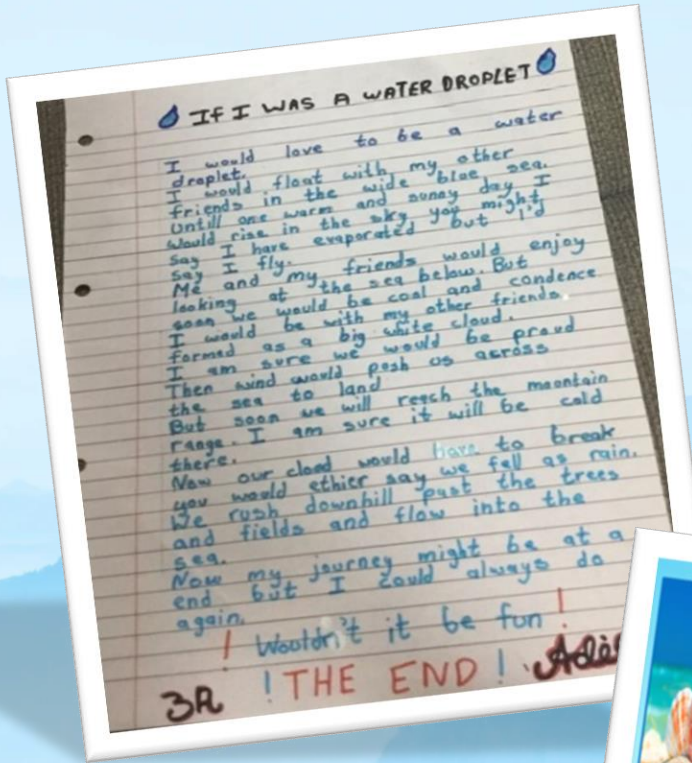 If I WAS A WATER DROPLET
I would love to be a water
droplet.
I would float with my other
friends in the wide blue sea.
Untill one warm and sunny day I
would rise in the sky, you might
say I have evaporated but I'd
say I fly.
Me and my friends would enjoy
looking at the sea below. But
soon we would be cool and condence
I would be with my other friends.
formed as a big white cloud.
I am sure we would be proud
Then wind would posh us across
the sea to land
But soon we will reach the mountain
range. I am sure it will be cold
there.
Now our cloud would have to break
you would ethier say we fell as rain.
We rush downhill past the trees
and fields and flow into the
sea.
Now my journey might be at a
end but I could always do
again.
! Wouldn't it be fun !
! THE END !
3A